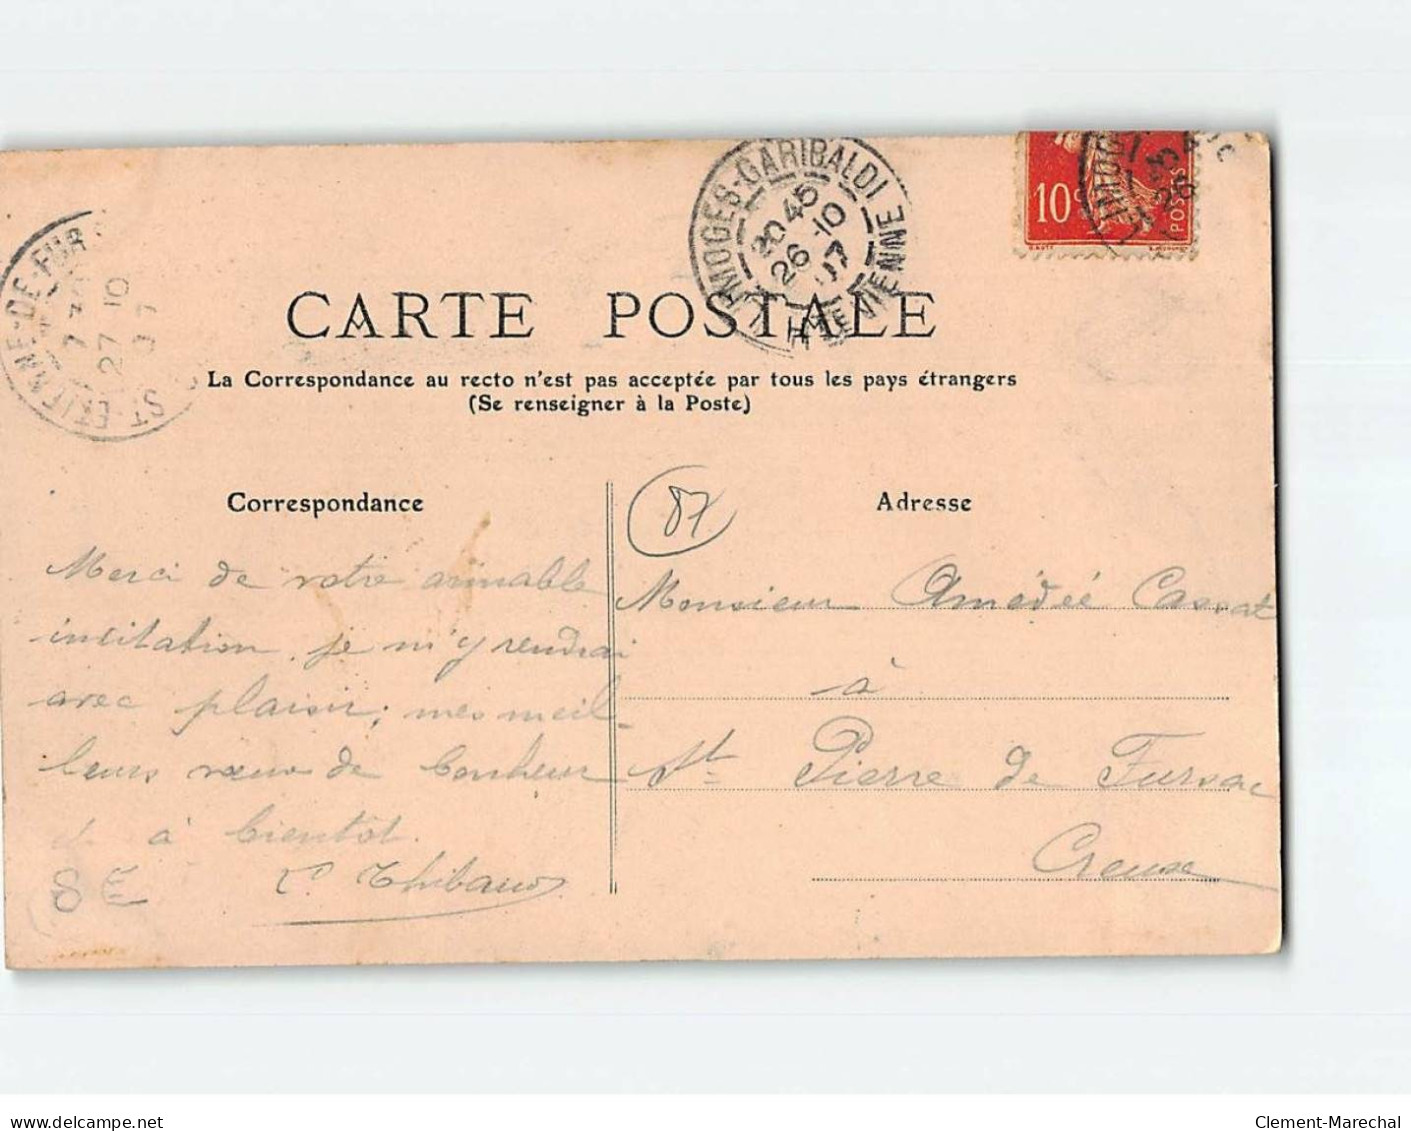 LIMOGES-GARIBALDI
20 45
26 -10
07
HTE VIENNE
10c
POSTES
ST-ETIENNE-DE-FUR
7
27 10
07
CARTE POSTALE
La Correspondance au recto n'est pas acceptée par tous les pays étrangers
(Se renseigner à la Poste)
Correspondance
Adresse
87
Merci de votre aimable
invitation, je m'y rendrai
avec plaisir; mes meil-
leurs vœux de bonheur
à bientôt.
Thibaud
8 E
Monsieur Amédée Cassat
à
St Pierre de Fursac
Creuse
www.delcampe.net
Clement-Marechal